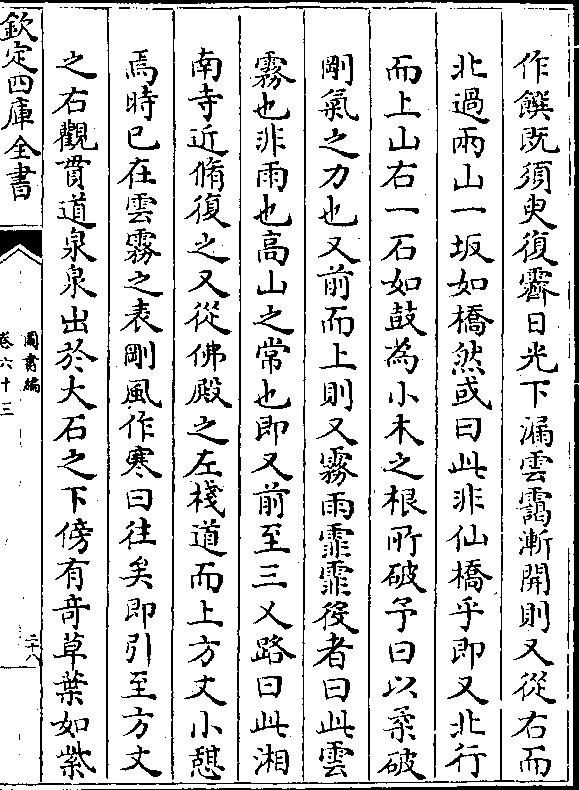 作饌既須臾復霽日光下漏雲靄漸開則又從右而
北過兩山一坂如橋然或曰此非仙橋乎即又北行
而上山右一石如鼓為小木之根所破予曰以柔破
剛氣之力也又前而上則又霧雨霏霏役者曰此雲
霧也非雨也高山之常也即又前至三乂路曰此湘
南寺近脩復之又從佛殿之左棧道而上方丈小憩
焉時已在雲霧之表剛風作寒曰往矣即引至方丈
之右觀貫道泉泉出於大石之下傍有竒草葉如紫
欽定四庫全書
圖書編
卷六十三
二十八